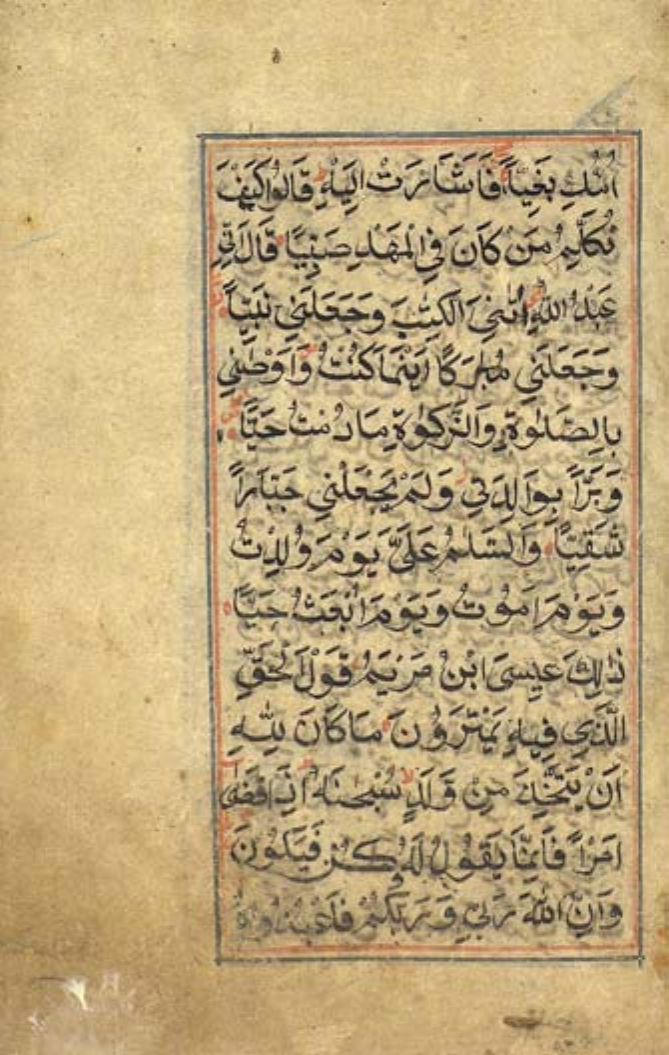 اُمُّكِ بَغِيًّا فَاَشَارَتْ اِلَيْهِ قَالُوا كَيْفَ
نُكَلِّمُ مَنْ كَانَ فِي الْمَهْدِ صَبِيًّا قَالَ اِنِّي
عَبْدُ اللّٰهِ اٰتٰنِيَ الْكِتٰبَ وَجَعَلَنِي نَبِيًّا
وَجَعَلَنِي مُبٰرَكًا اَيْنَمَا كُنْتُ وَاَوْصٰنِي
بِالصَّلٰوةِ وَالزَّكٰوةِ مَا دُمْتُ حَيًّا
وَبَرًّا بِوَالِدَتِي وَلَمْ يَجْعَلْنِي جَبَّارًا
شَقِيًّا وَالسَّلٰمُ عَلَيَّ يَوْمَ وُلِدْتُ
وَيَوْمَ اَمُوتُ وَيَوْمَ اُبْعَثُ حَيًّا
ذٰلِكَ عِيسَى ابْنُ مَرْيَمَ قَوْلَ الْحَقِّ
الَّذِي فِيهِ يَمْتَرُونَ مَا كَانَ لِلّٰهِ
اَنْ يَتَّخِذَ مِنْ وَلَدٍ سُبْحٰنَهُ اِذَا قَضٰى
اَمْرًا فَاِنَّمَا يَقُولُ لَهُ كُنْ فَيَكُونُ
وَاِنَّ اللّٰهَ رَبِّي وَرَبُّكُمْ فَاعْبُدُوهُ